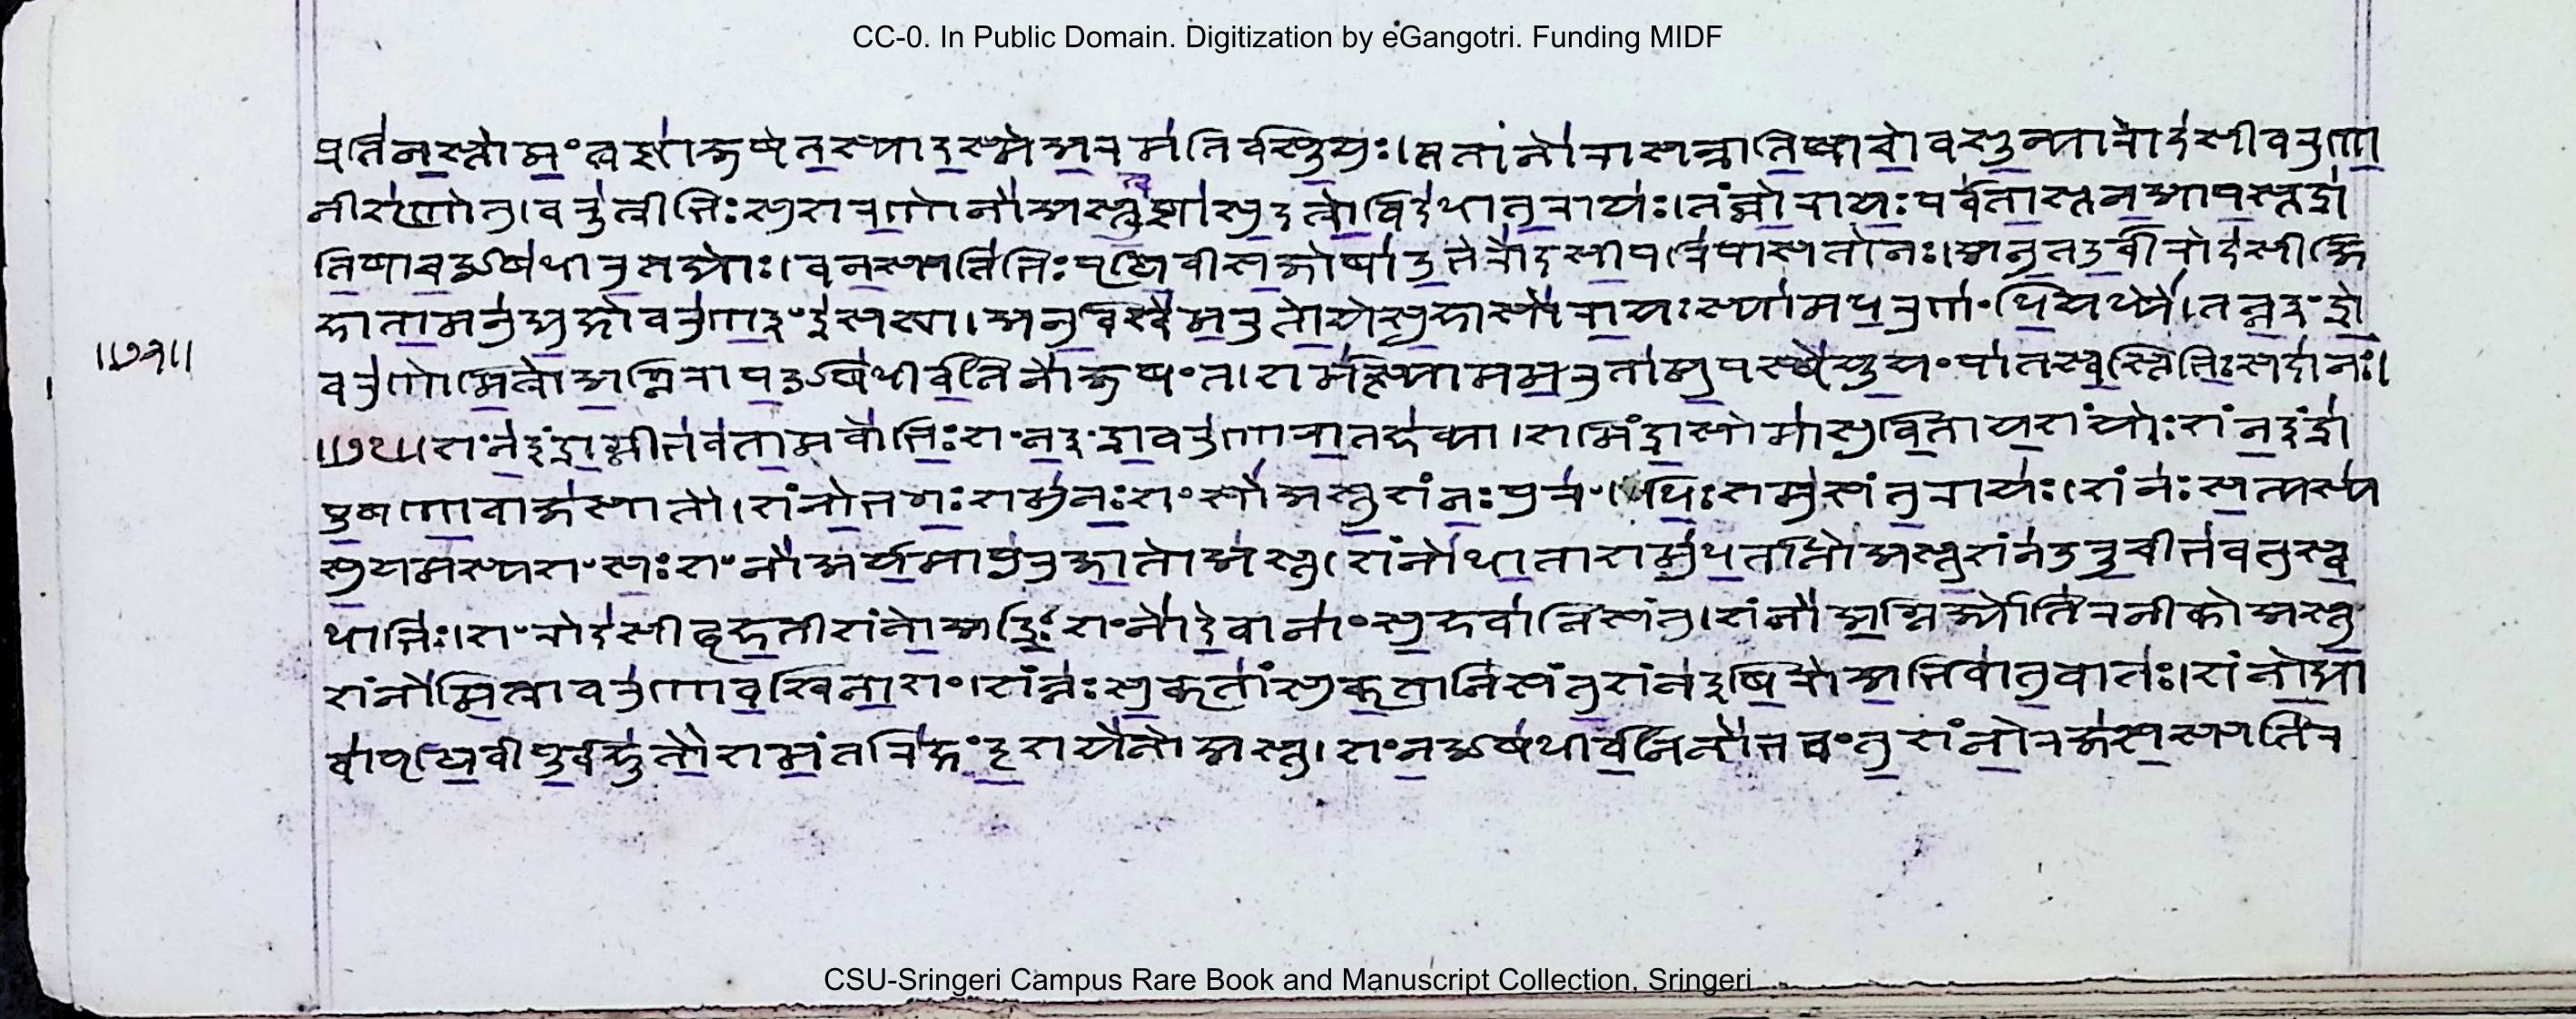 प्रति॑न॒स्तोमं॒त्वष्टा॑जुषेत॒स्याद॒स्मेअ॒रम॑तिर्वसू॒युः।तानो॑रासन्राति॒षाचो॒वसू॒न्यारोद॑सीवरुणा॒
नीशृ॑णोतु।वरू॑त्रीभिःसुशर॒णोनो॑अस्तु॒त्वष्टा॑सु॒दत्रो॒विद॑धातु॒रायः॑।तन्नो॒रायः॒पर्व॑ता॒स्तन्न॒आप॒स्तद्रा॑
ति॒षाच॒ओष॑धीरु॒तद्यौः।वन॒स्पति॑भिःपृथि॒वीस॒जोषा॑उ॒भेरोद॑सी॒परि॑पासतोनः।अनु॒तदु॒र्वीरोद॑सीजि
हाता॒मनु॑द्यु॒क्षोवरु॑ण॒इंद्र॑सखा।अनु॒विश्वे॑म॒रुतो॒येस॒हासो॑रा॒यःस्या॑मध॒रुणं॑धि॒यध्यै॑।तन्न॒इंद्रो॒
॥७१॥
वरु॑णोमि॒त्रोअ॒ग्निराप॒ओष॑धीर्व॒निनो॑जुषंत।शर्म॑न्त्स्यामम॒रुता॑मु॒पस्थे॑यू॒यंपा॑तस्व॒स्तिभिः॒सदा॑नः।
॥७२॥शंन॑इंद्रा॒ग्नीभ॑वता॒मवो॑भिः॒शंन॒इंद्रा॒वरु॑णारा॒तह॑व्या।शमिंद्रा॒सोमा॑सुवि॒ताय॒शंयोःशंन॒इंद्रा॑
पू॒षणा॒वाज॑सातौ।शंनो॒भगः॒शमु॑नः॒शंसो॑अस्तु॒शंनः॒पुरं॑धिः॒शमु॑संतु॒रायः॑।शंनः॑स॒त्यस्य॑
सु॒यम॑स्य॒शंसः॒शंनो॑अर्य॒मापु॑रुजा॒तोअ॑स्तु।शंनो॑धा॒ताशमु॑ध॒र्तानो॑अस्तु॒शंन॑उरू॒चीभ॑वतुस्व॒
धाभिः॑।शंरोद॑सीबृह॒तीशंनो॒अद्रिः॒शंनो॑दे॒वानां॑सु॒हवा॑निसंतु।शंनो॑अ॒ग्निर्ज्योति॑रनीकोअस्तु॒
शंनो॑मि॒त्रावरु॑णाव॒श्विना॒शं।शंनः॑सु॒कृतां॑सुकृ॒तानि॑संतु॒शंन॑इषि॒रोअ॒भिवा॑तु॒वातः॑।शंनो॒द्या
वा॑पृथि॒वीपू॒र्वहू॑तौ॒शमं॒तरि॑क्षंदृ॒शये॑नोअस्तु।शंन॒ओष॑धीर्व॒निनो॑भवंतु॒शंनो॒रज॑स॒स्पति॑र
CC-0. In Public Domain. Digitization by eGangotri. Funding MIDF
CSU-Sringeri Campus Rare Book and Manuscript Collection, Sringeri